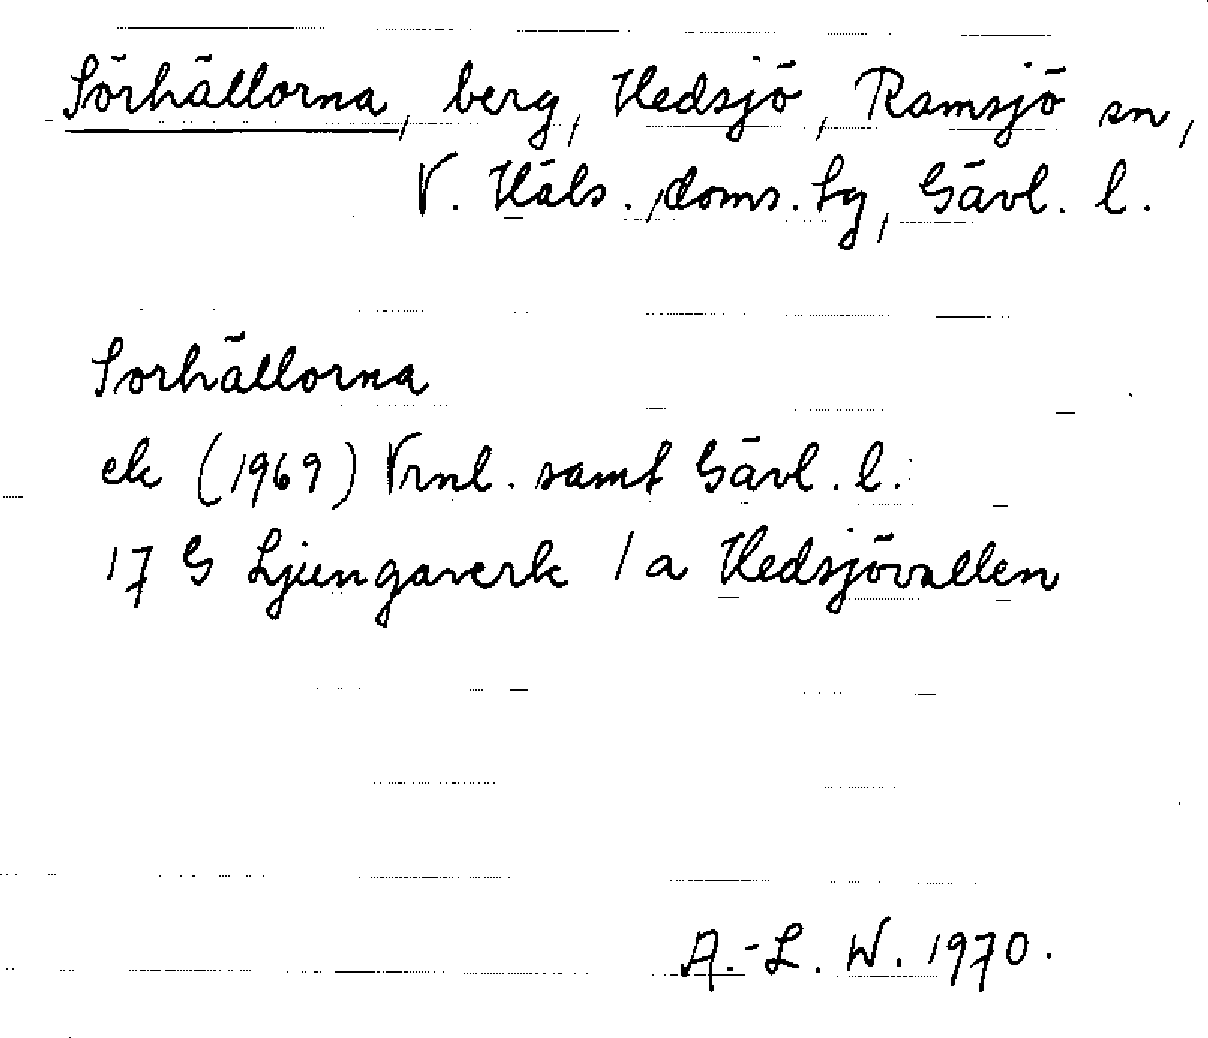 Sörhällorna, berg, Hedsjö, Ramsjö sn,
V. Häls. doms. tg, Gävl. l.
Sorhällorna
ek (1969) Vrnl. samt Gävl. l.
17 G Ljungaverk 1 a Hedsjövallen
A.-L. W. 1970.